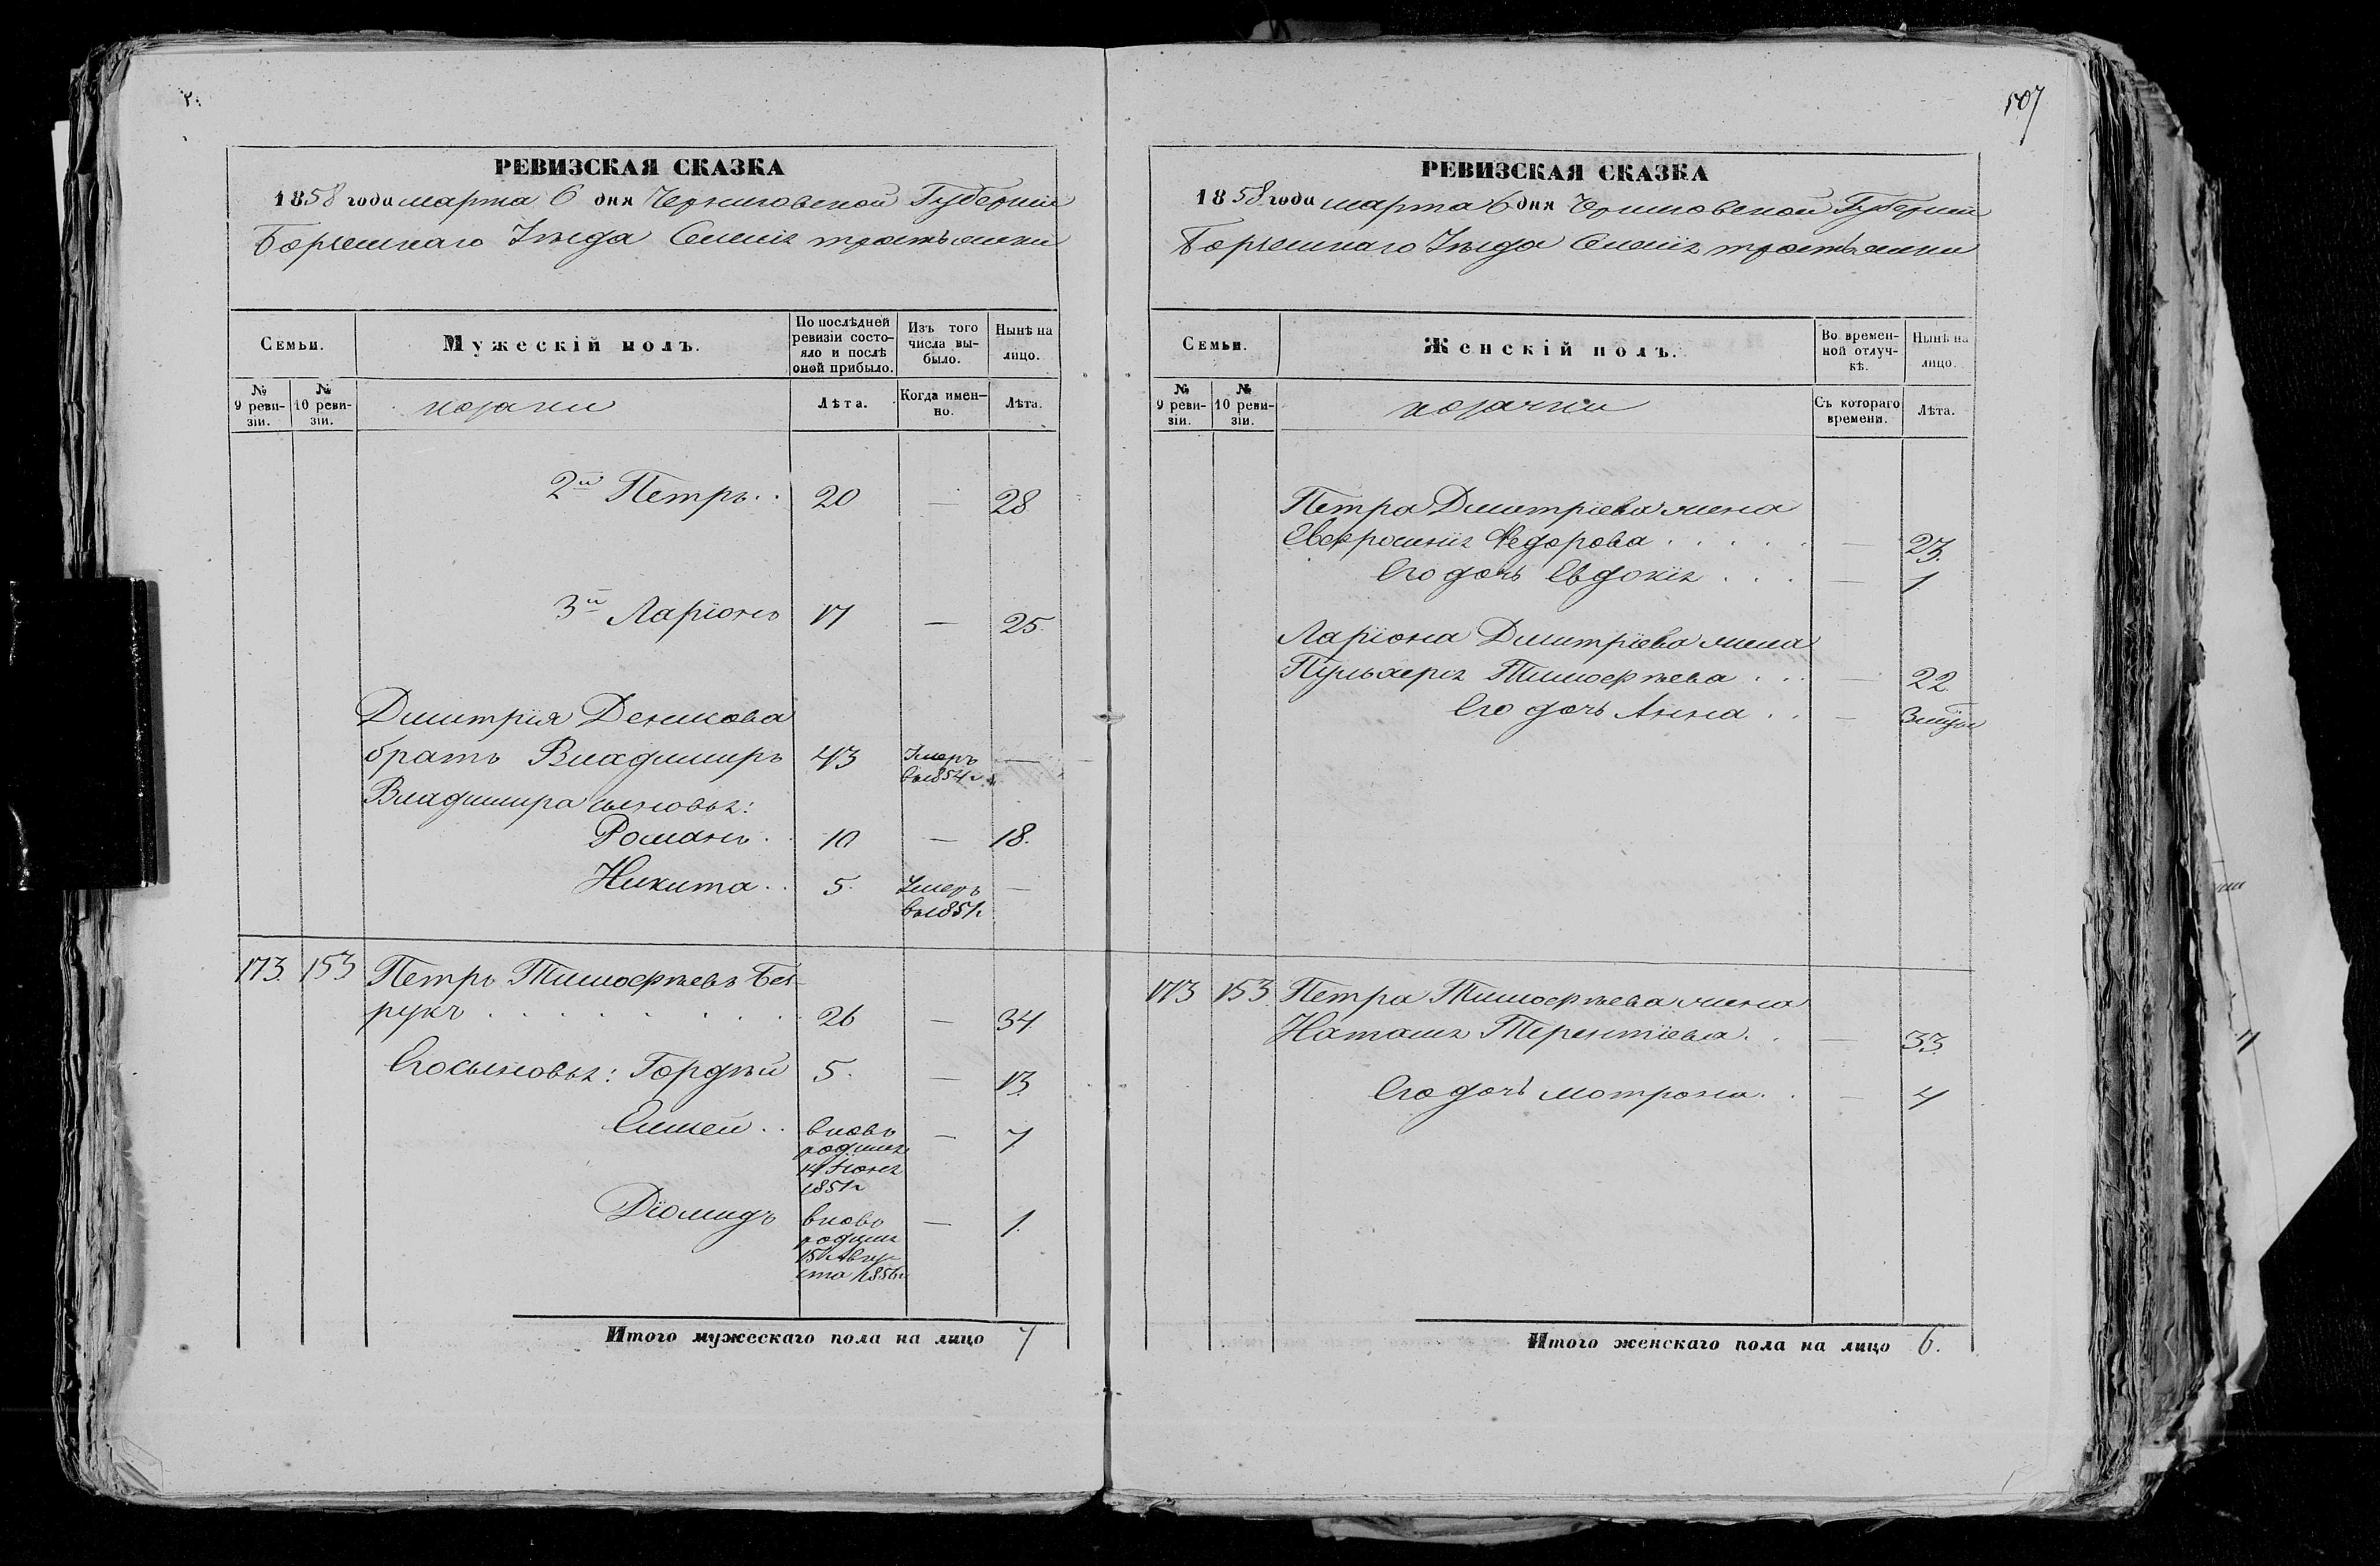 507
РЕВИЗСКАЯ СКАЗКА
1858 года марта 6 дня Черниговской Губерніи
Борзенскаго Уезда Селенія
Семьи.
Мужескій полъ.
По послѣдней ревизіи состо-
яло и послѣ
оной прибыло.
Изъ того
числа вы-
было.
Нынѣ на
лицо.
№
9 реви-
зіи.
№
10 реви-
зіи.
козаки
Лѣта.
Когда имен-
но.
Лѣта.
2й Петръ . . 20 — 28
3й Ларіонъ 17 — 25.
Дмитрія Денисова
братъ Владимиръ 43 Умеръ —
в 1854 г.
Владимира сыновья:
Романъ . 10 — 18.
Никита . . 5. Умеръ —
в 1851 г.
173. 153 Петръ Тимофѣевъ Бе-
рукъ . . . . . . . . 26 — 34
Его сыновья: Гордѣй 5. — 13.
вновь — 7
родился
14 Іюня
1851 г
Діомидъ вновь — 1.
родился
15 Авгу-
ста 1856 г
Итого мужескаго пола на лицо 7
РЕВИЗСКАЯ СКАЗКА
1858 года марта 6 дня Черниговской Губерніи
Борзенскаго Уезда Селенія
Семьи.
Женскій полъ.
Во времен-
ной отлуч-
кѣ.
Нынѣ на
лицо.
№
9 реви-
зіи.
№
10 реви-
зіи.
козачки
Съ котораго
времени.
Лѣта.
Петра Дмитріева жена
Евфросинія Федорова . . . . . — 23.
Его дочь Евдокія . . . — 1
Ларіона Дмитріева жена
Пульхерія Тимофѣева . . . — 22.
Его дочь Анна . . —
173 153. Петра Тимофѣева жена
Наталія Терентіева . . — 33.
Его дочь Мотрона . . — 4
Итого женскаго пола на лицо 6.